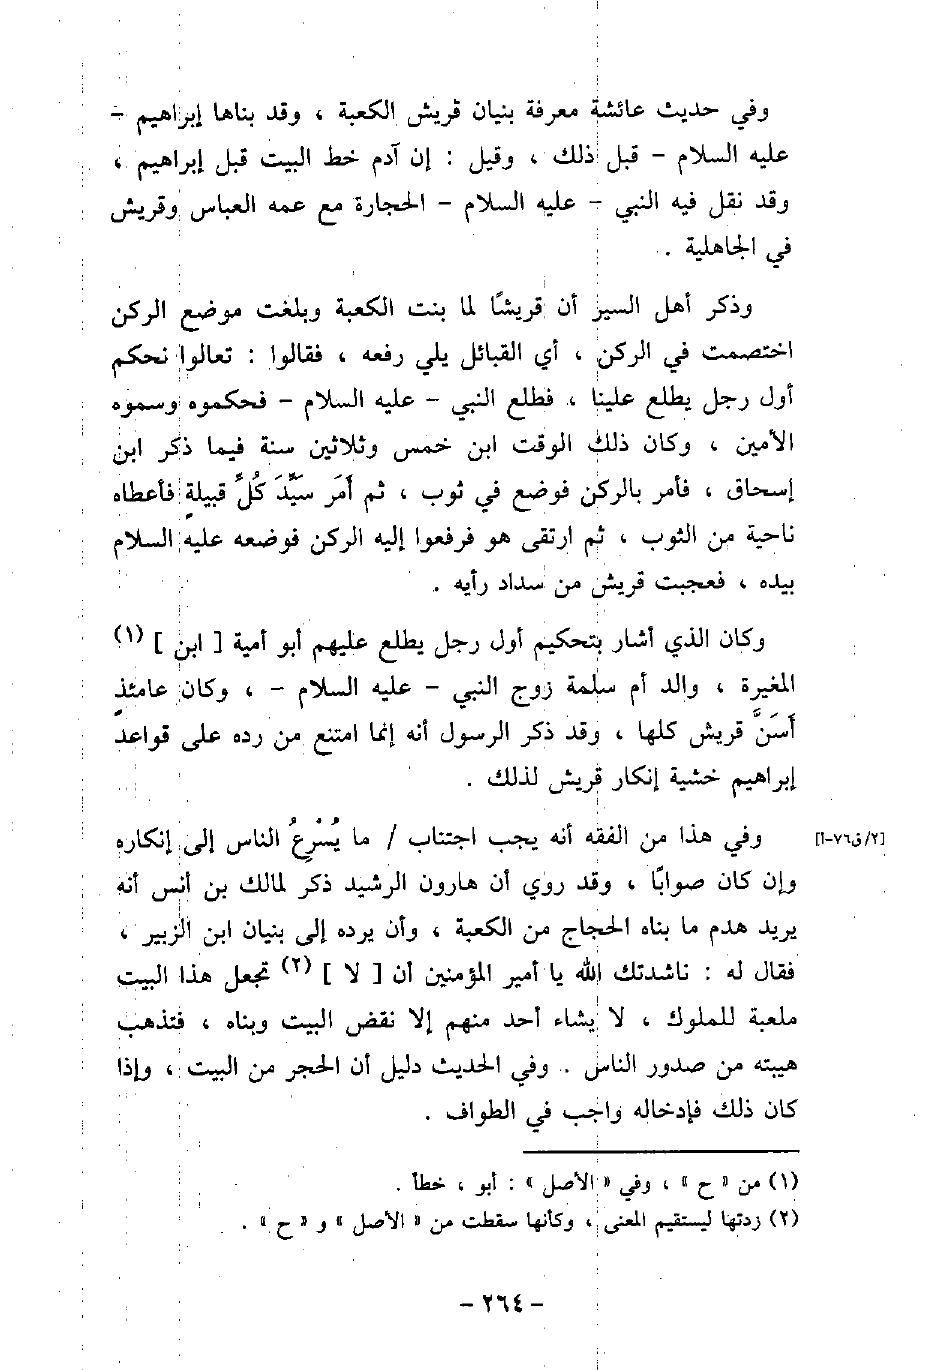 وفي حديث عائشة معرفة بنيان قريش الكعبة ، وقد بناها إبراهيم -
عليه السلام - قبل ذلك ، وقيل : إن آدم خط البيت قبل إبراهيم ،
وقد نقل فيه النبي - عليه السلام - الحجارة مع عمه العباس وقريش
في الجاهلية .
وذكر أهل السير أن قريشًا لما بنت الكعبة وبلغت موضع الركن
اختصمت في الركن ، أي القبائل يلي رفعه ، فقالوا : تعالوا نحكم
أول رجل يطلع علينا ، فطلع النبي - عليه السلام - فحكموه وسموه
الأمين ، وكان ذلك الوقت ابن خمس وثلاثين سنة فيما ذكر ابن
إسحاق ، فأمر بالركن فوضع في ثوب ، ثم أَمَر سَيِّدَ كُلِّ قبيلةٍ فأعطاه
ناحية من الثوب ، ثم ارتقى هو فرفعوا إليه الركن فوضعه عليه السلام
بيده ، فعجبت قريش من سداد رأيه .
وكان الذي أشار بتحكيم أول رجل يطلع عليهم أبو أمية [ ابن ] (١)
المغيرة ، والد أم سلمة زوج النبي - عليه السلام - ، وكان عامئذٍ
أَسَنَّ قريش كلها ، وقد ذكر الرسول أنه إنما امتنع من رده على قواعد
إبراهيم خشية إنكار قريش لذلك .
وفي هذا من الفقه أنه يجب اجتناب / ما يُسْرِعُ الناس إلى إنكاره [٢/ق٧٦-أ]
وإن كان صوابًا ، وقد روي أن هارون الرشيد ذكر لمالك بن أنس أنه
يريد هدم ما بناه الحجاج من الكعبة ، وأن يرده إلى بنيان ابن الزبير ،
فقال له : ناشدتك الله يا أمير المؤمنين أن [ لا ] (٢) تجعل هذا البيت
ملعبة للملوك ، لا يشاء أحد منهم إلا نقض البيت وبناه ، فتذهب
هيبته من صدور الناس . وفي الحديث دليل أن الحجر من البيت ، وإذا
كان ذلك فإدخاله واجب في الطواف .
(١) من « ح » ، وفي « الأصل » : أبو ، خطأ .
(٢) زدتها ليستقيم المعنى ، وكأنها سقطت من « الأصل » و « ح » .
- ٢٦٤ -